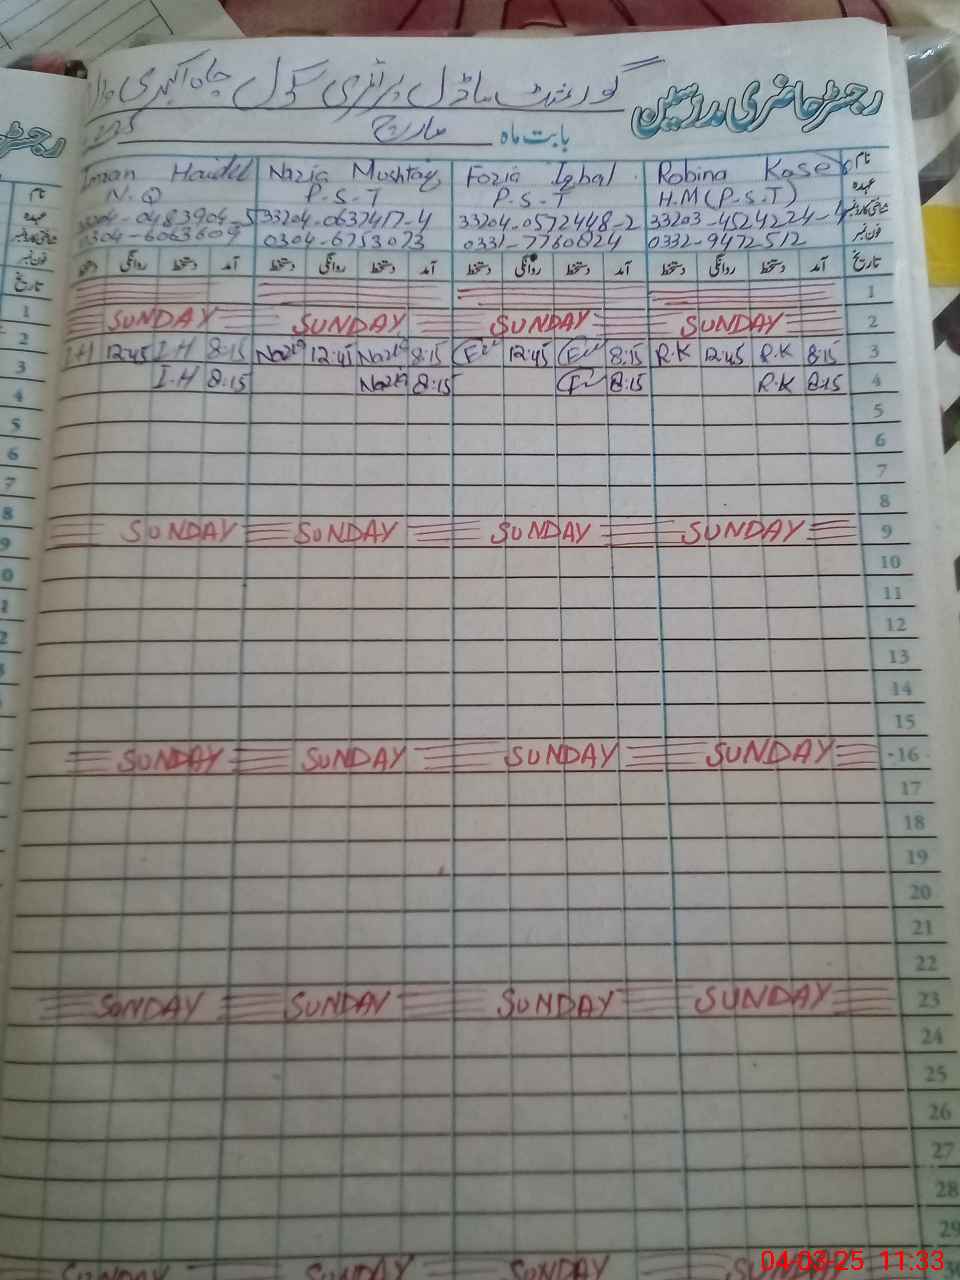 رجسٹر حاضری مدرسین
گورنمنٹ ماڈل پرائمری سکول چاہ اکبری والا
بابت ماہ مارچ
نام Robina Fozia Iqbal Nazia Mushtaq Imran Haider
عہدہ H.M (P.S.T) P.S.T P.S.T N.Q
شناختی کارڈ نمبر 33204-0572448-2 33204-0637417-4
فون نمبر 0332-9472512 0331-7760824 0304-6753073 0304-6063609
تاریخ آمد دستخط روانگی دستخط آمد دستخط روانگی دستخط آمد دستخط روانگی دستخط آمد دستخط روانگی دستخط
1
2 SUNDAY SUNDAY SUNDAY SUNDAY
3 8:15 R.K 12:45 R.K 8:15 12:45 8:15 Nazia 12:45 Nazia 8:15 I.H 12:45 I.H
4 8:15 R.K 8:15 8:15 Nazia 8:15 I.H
5
6
7
8
9 SUNDAY SUNDAY SUNDAY SUNDAY
10
11
12
13
14
15
16 SUNDAY SUNDAY SUNDAY SUNDAY
17
18
19
20
21
22
23 SUNDAY SUNDAY SUNDAY SUNDAY
24
25
26
27
28
29
SUNDAY SUNDAY SUNDAY
04-03-25 11:33